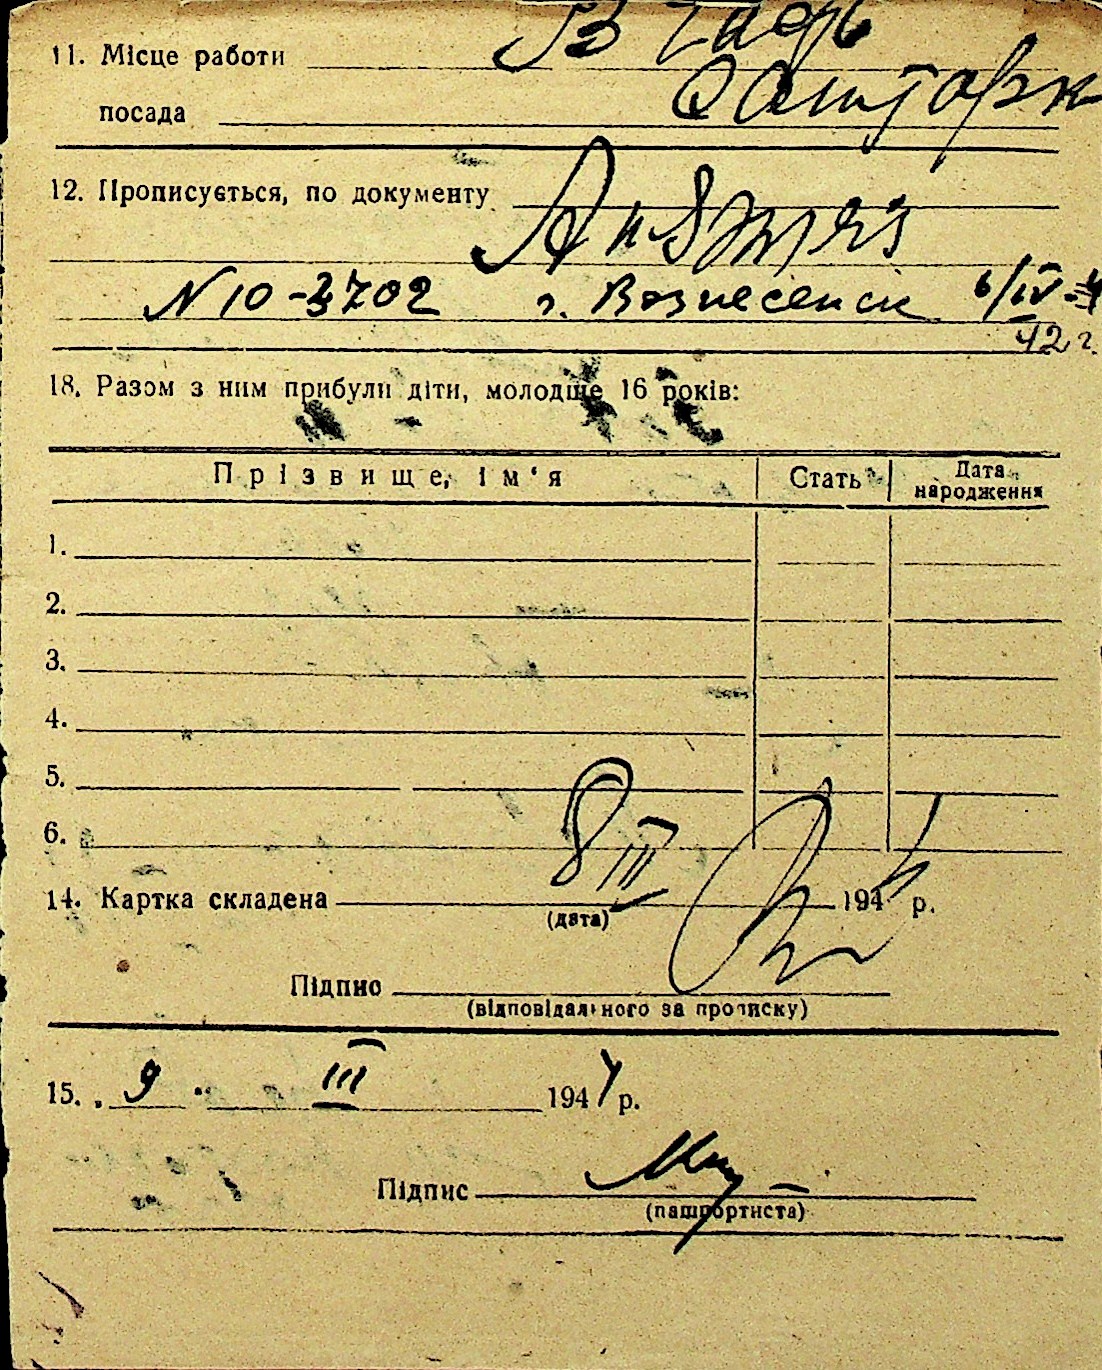 11. Місце работи
посада
12. Прописується, по документу
N 10-3702 г. Вознесенск 6/IV-
42 г.
18. Разом з ним прибули діти, молодще 16 років:
Прізвище, ім'я Стать Дата народження
1.
2.
3.
4.
5.
6.
14. Картка складена 8 III 1944 р.
(дата)
Підпис
(відповідального за прописку)
15. 9 III 1944 р.
Підпис
(пашпортиста)